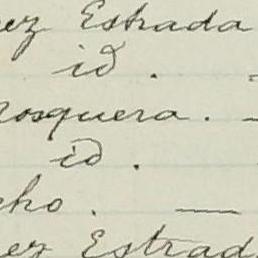 ez Estrada
id.
osquera. —
id.
cho. —
ez Estrad